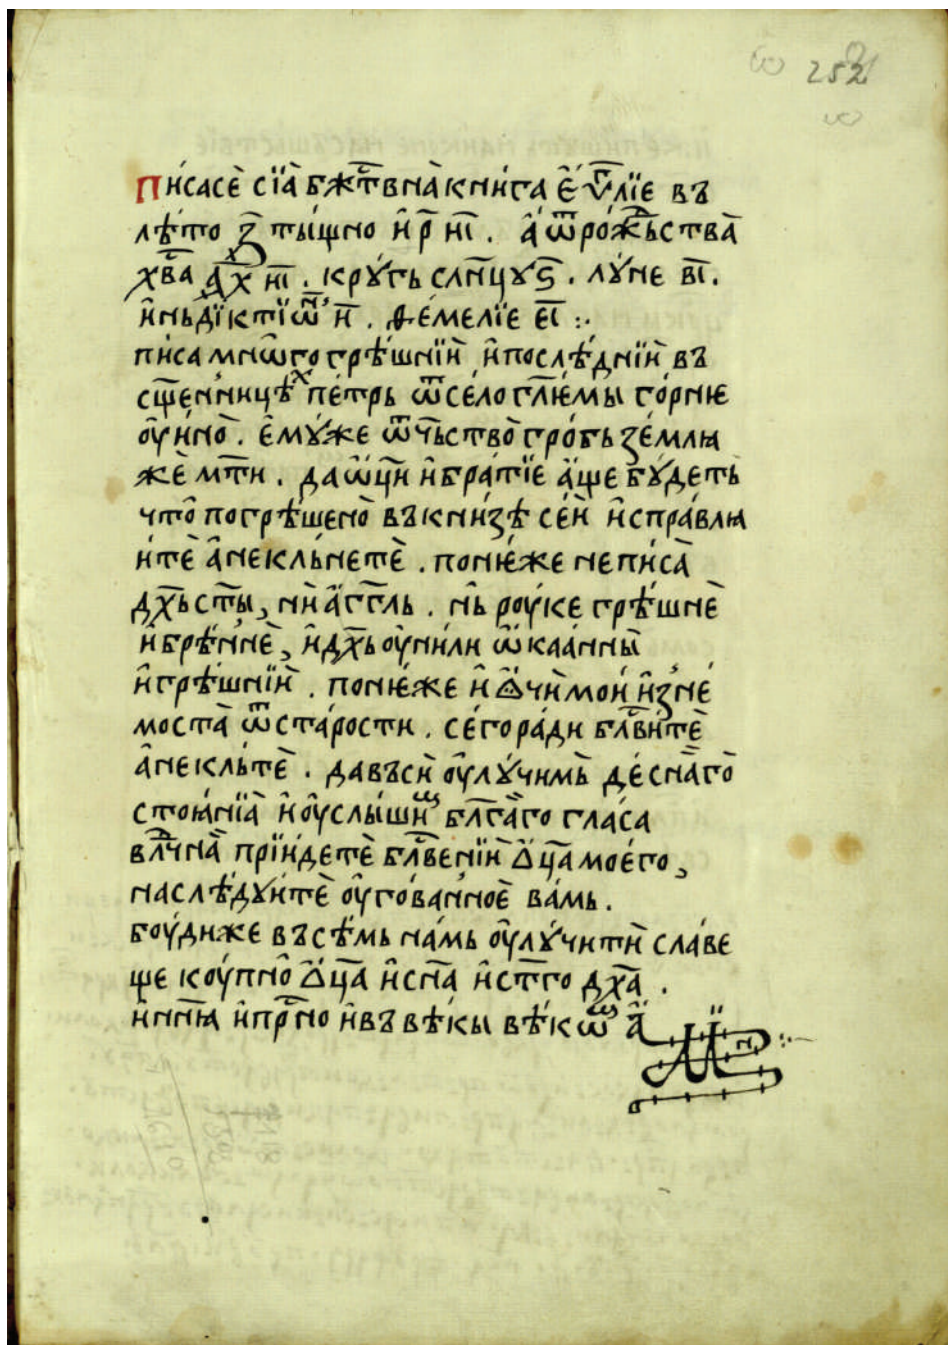 252
Писасѐ сїа̀ бж҇твнаꙗ книга еѵ҇лїе въ
лѣто ҂з҃ тыщно и҆ р҃ н҃і. а҆ ѿ рожⷣьства
хв҃а ҂а҃х н҃і. кругь слн҃цу ѕ҃. лꙋне в҃і.
и҆ньдїктїѡⷩ҇ н҃. ѳемелїе е҃і :·
писа мнѡго грѣшнїи и҆ послѣднїи въ
сщ҃енницѣⷯ петрь ѿ село гл҃ѥмы горнѥ
ѹ҆йно. е҆мꙋже ѿчьство гробь землꙗ
же мт҃и. да ѡ҆ц҃и и҆ братїе а҆ще бꙋдеть
что погрѣшено въ книзѣ сеи и҆справлꙗ
ите а҆ не кльнете. понѥже не писа
дх҃ь ст҃ы, ни а҆гг҃ль. нь роуке грѣшне
и҆ брѣнне, и҆ дх҃ь ѹ҆нили ѡ҆каанны
и҆ грѣшнїи. понѥже и҆ ѻ҆чи мои и҆зне
моста ѿ старости. сего ради бл҃вите
а҆ не кльте. да въси ѹ҆лꙋчимь деснаго
стоꙗнїа и҆ ѹ҆слышиⷨ бл҃гаго гласа
влⷣчна прїидете бл҃вении ѻ҆ц҃а моего,
наслѣдꙋите ѹ҆гованное вамь.
боуди же въсѣмь намь ѹ҆лꙋчити славе
ще коупно ѻ҆ц҃а и҆ сн҃а и҆ ст҃го дх҃а.
и҆ нн҃ꙗ и҆ прⷭ҇но и҆ въ вѣкы вѣкѡⷨ а҆мин